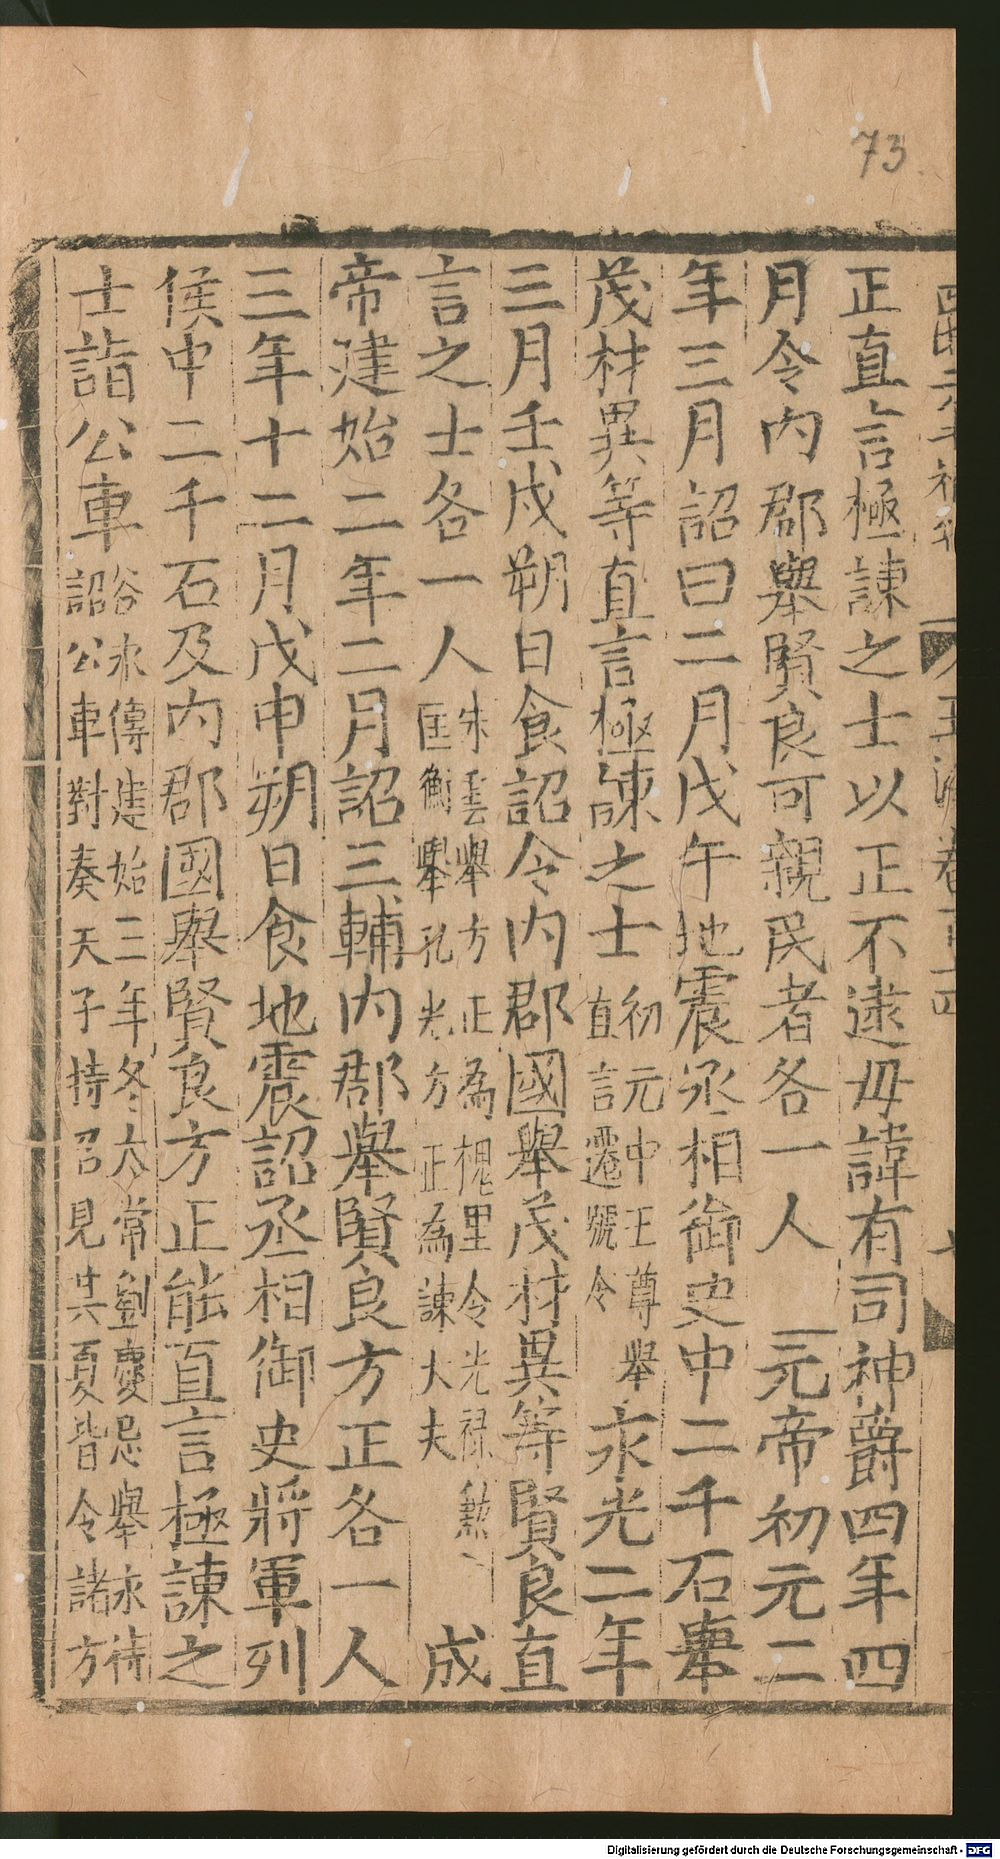 73
正直言極諫之士以正不逮毋諱有司神爵四年四
月令內郡舉賢良可親民者各一人 元帝初元二
年三月詔曰二月戊午地震丞相御史中二千石舉
茂材異等直言極諫之士 初元中王尊舉直言遷虢令 永光二年
三月壬戌朔日食詔令內郡國舉茂材異等賢良直
言之士各一人 朱雲舉方正為槐里令光祿勲匡衡舉孔光方正為諫大夫 成
帝建始二年二月詔三輔內郡舉賢良方正各一人
三年十二月戊申朔日食地震詔丞相御史將軍列
侯中二千石及內郡國舉賢良方正能直言極諫之
士詣公車 谷永傳建始三年冬太常劉慶忌舉永待詔公車對奏天子持召見其夏皆令諸方
Digitalisierung gefördert durch die Deutsche Forschungsgemeinschaft - DFG